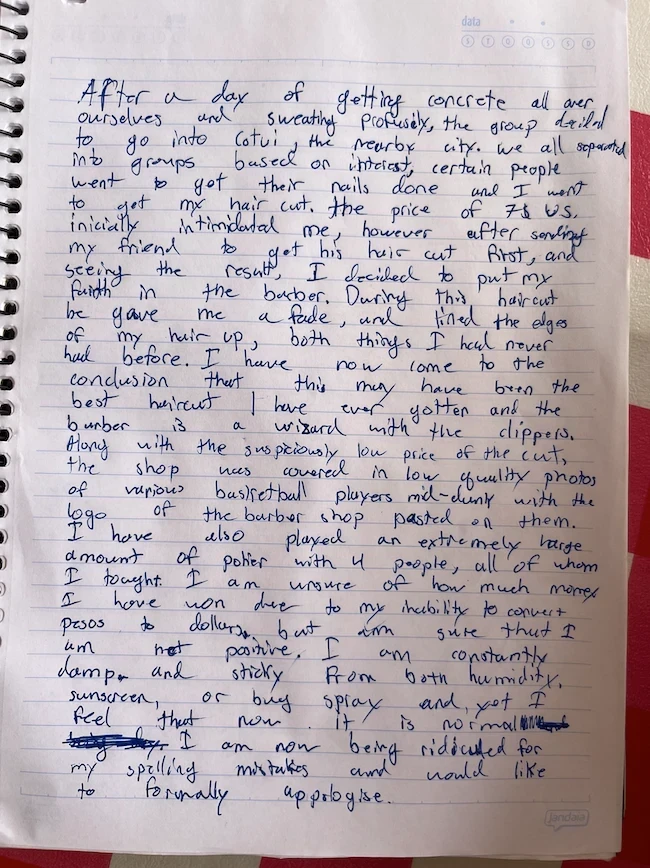 data
S T Q Q S S D
After a day of getting concrete all over
ourselves and sweating profusely, the group decided
to go into Cotui, the nearby city. we all separated
into groups based on interest, certain people
went to get their nails done and I went
to get my hair cut. the price of 7$ US.
inicially intimidated me, however after sending
my friend to get his hair cut first, and
seeing the result, I decided to put my
faith in the barber. During this haircut
he gave me a fade, and lined the edges
of my hair up, both things I had never
had before. I have now come to the
conclusion that this may have been the
best haircut I have ever gotten and the
barber is a wizard with the clippers.
Along with the suspiciously low price of the cut,
the shop was covered in low quality photos
of various basketball players mid-dunk with the
logo of the barber shop pasted on them.
I have also played an extremely large
amount of poker with 4 people, all of whom
I tought. I am unsure of how much money
I have won due to my inability to convert
pesos to dollars, but am sure that I
am not positive. I am constantly
damp and sticky from both humidity,
sunscreen, or bug spray and yet I
feel that now it is normal
I am now being ridiculed for
my spelling mistakes and would like
to formally appologise.
jandaia